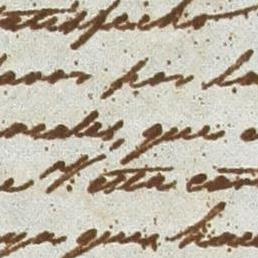 satisfecho
favor por la
ocales, que e
e V. esta com
ya que hace